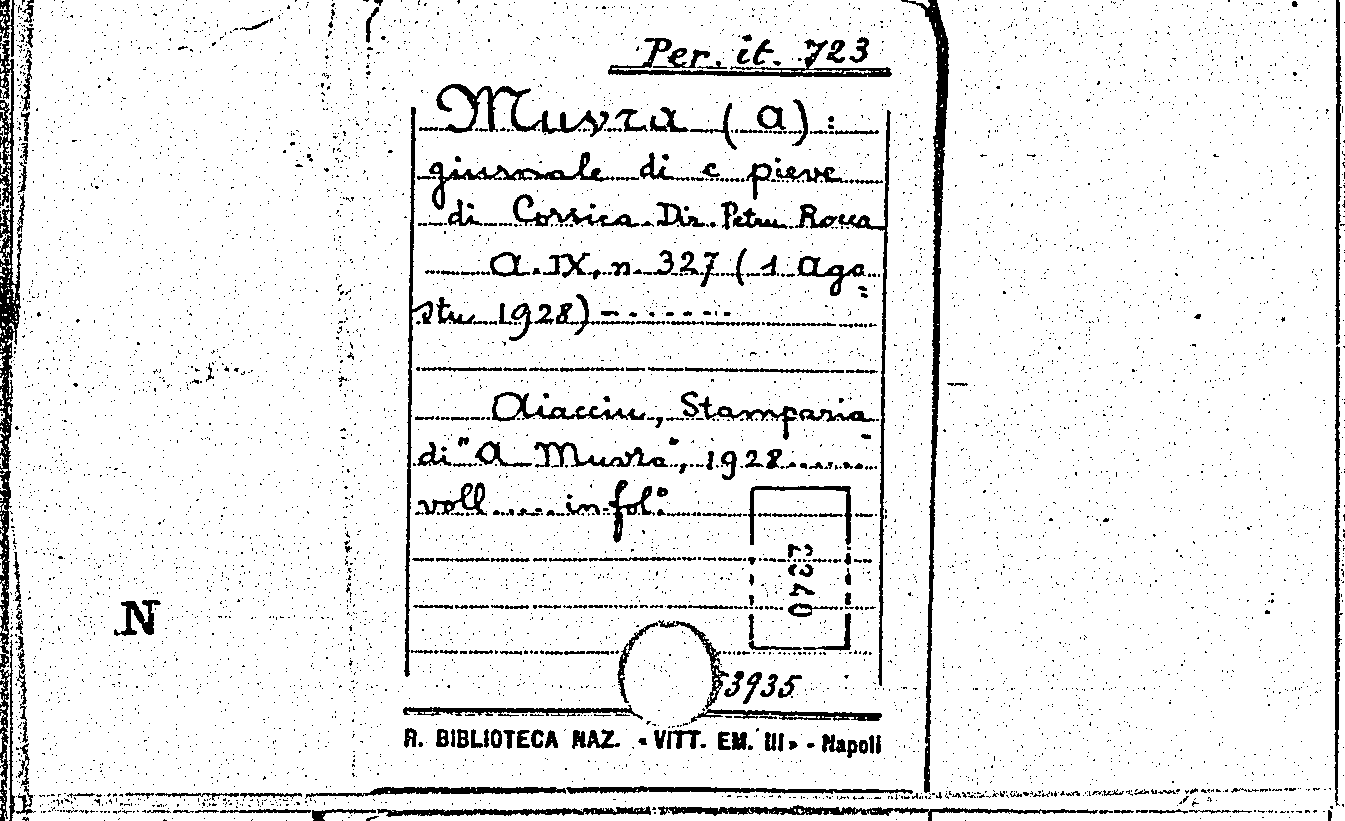 Per. it. 723
Muvra (A):
giurnale di e pieve
di Corsica Dir. Petru Rocca
A. IX, n. 327 (1 Ago=
stu 1928) - - - - - - -
Aiacciu, Stamparia
di "A Muvra", 1928......
voll..... in fol.°
2240
N
3935
R. BIBLIOTECA NAZ. «VITT. EM. III» - Napoli